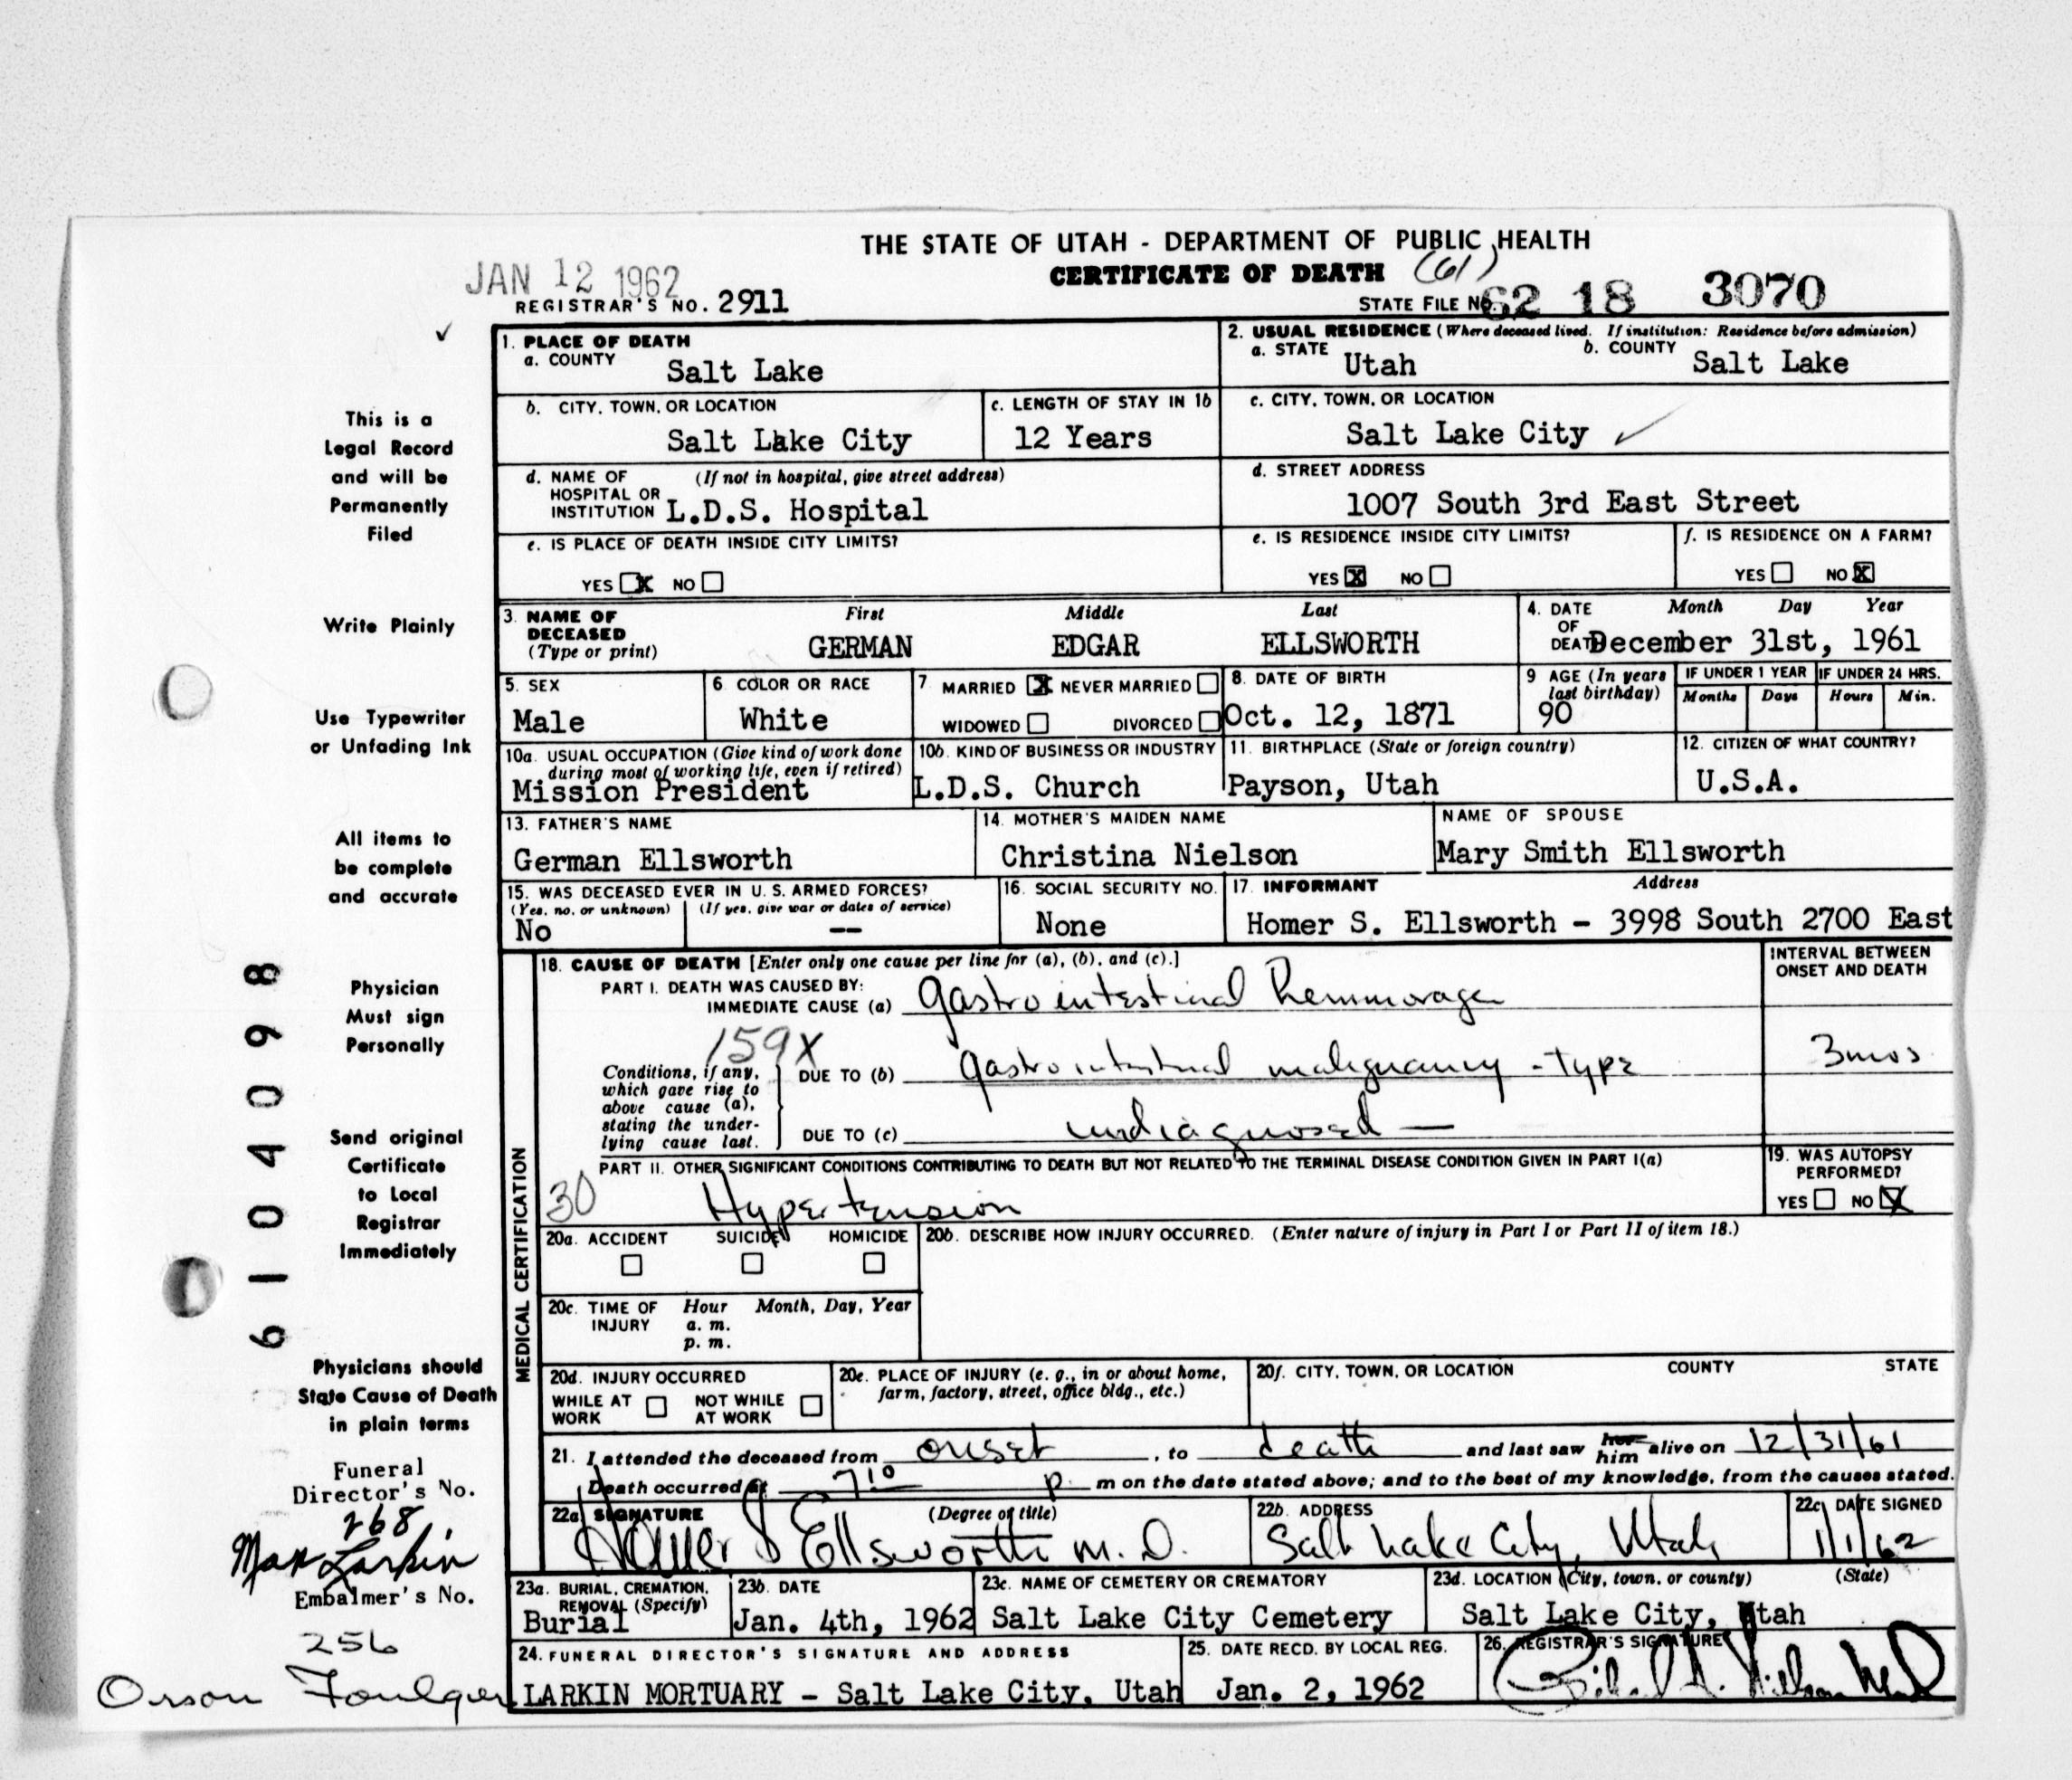 THE STATE OF UTAH - DEPARTMENT OF PUBLIC HEALTH
CERTIFICATE OF DEATH (61)
JAN 12 1962
REGISTRAR'S NO. 2911
STATE FILE NO. 62 18 3070
1. PLACE OF DEATH
a. COUNTY Salt Lake
2. USUAL RESIDENCE (Where deceased lived. If institution: Residence before admission)
a. STATE Utah b. COUNTY Salt Lake
b. CITY, TOWN, OR LOCATION Salt Lake City
c. LENGTH OF STAY IN 1b 12 Years
c. CITY, TOWN, OR LOCATION Salt Lake City
d. NAME OF HOSPITAL OR INSTITUTION (If not in hospital, give street address) L.D.S. Hospital
d. STREET ADDRESS 1007 South 3rd East Street
e. IS PLACE OF DEATH INSIDE CITY LIMITS?
YES X NO
e. IS RESIDENCE INSIDE CITY LIMITS?
YES X NO
f. IS RESIDENCE ON A FARM?
YES NO X
3. NAME OF DECEASED (Type or print)
First Middle Last
GERMAN EDGAR ELLSWORTH
4. DATE OF DEATH Month Day Year
December 31st, 1961
5. SEX Male
6 COLOR OR RACE White
7 MARRIED X NEVER MARRIED
WIDOWED DIVORCED
8. DATE OF BIRTH Oct. 12, 1871
9 AGE (In years last birthday) 90
IF UNDER 1 YEAR Months Days
IF UNDER 24 HRS. Hours Min.
10a. USUAL OCCUPATION (Give kind of work done during most of working life, even if retired)
Mission President
10b. KIND OF BUSINESS OR INDUSTRY L.D.S. Church
11. BIRTHPLACE (State or foreign country) Payson, Utah
12. CITIZEN OF WHAT COUNTRY? U.S.A.
13. FATHER'S NAME German Ellsworth
14. MOTHER'S MAIDEN NAME Christina Nielson
NAME OF SPOUSE Mary Smith Ellsworth
15. WAS DECEASED EVER IN U. S. ARMED FORCES?
(Yes, no, or unknown) (If yes, give war or dates of service)
No --
16. SOCIAL SECURITY NO. None
17. INFORMANT Address
Homer S. Ellsworth - 3998 South 2700 East
MEDICAL CERTIFICATION
18. CAUSE OF DEATH [Enter only one cause per line for (a), (b), and (c).]
INTERVAL BETWEEN ONSET AND DEATH
PART I. DEATH WAS CAUSED BY:
IMMEDIATE CAUSE (a) Gastrointestinal hemmorage
159X
Conditions, if any, which gave rise to above cause (a), stating the underlying cause last.
DUE TO (b) Gastrointestinal malignancy - type 3 mos
DUE TO (c) undiagnosed —
PART II. OTHER SIGNIFICANT CONDITIONS CONTRIBUTING TO DEATH BUT NOT RELATED TO THE TERMINAL DISEASE CONDITION GIVEN IN PART I(a)
30 Hypertension
19. WAS AUTOPSY PERFORMED?
YES NO X
20a. ACCIDENT SUICIDE HOMICIDE
20b. DESCRIBE HOW INJURY OCCURRED. (Enter nature of injury in Part I or Part II of item 18.)
20c. TIME OF INJURY Hour Month, Day, Year
a. m.
p. m.
20d. INJURY OCCURRED
WHILE AT WORK NOT WHILE AT WORK
20e. PLACE OF INJURY (e. g., in or about home, farm, factory, street, office bldg., etc.)
20f. CITY, TOWN, OR LOCATION COUNTY STATE
21. I attended the deceased from onset , to death and last saw her him alive on 12/31/61
Death occurred at 7 10 p. m on the date stated above; and to the best of my knowledge, from the causes stated.
22a. SIGNATURE (Degree or title)
Homer S Ellsworth M. D.
22b. ADDRESS Salt Lake City, Utah
22c. DATE SIGNED 1/1/62
23a. BURIAL, CREMATION, REMOVAL (Specify) Burial
23b. DATE Jan. 4th, 1962
23c. NAME OF CEMETERY OR CREMATORY Salt Lake City Cemetery
23d. LOCATION (City, town, or county) (State)
Salt Lake City, Utah
24. FUNERAL DIRECTOR'S SIGNATURE AND ADDRESS
LARKIN MORTUARY - Salt Lake City, Utah
25. DATE RECD. BY LOCAL REG. Jan. 2, 1962
26. REGISTRAR'S SIGNATURE
This is a
Legal Record
and will be
Permanently
Filed
Write Plainly
Use Typewriter
or Unfading Ink
All items to
be complete
and accurate
Physician
Must sign
Personally
Send original
Certificate
to Local
Registrar
Immediately
Physicians should
State Cause of Death
in plain terms
Funeral
Director's No.
268
Max Larkin
Embalmer's No.
256
Orson Foulger
6104098